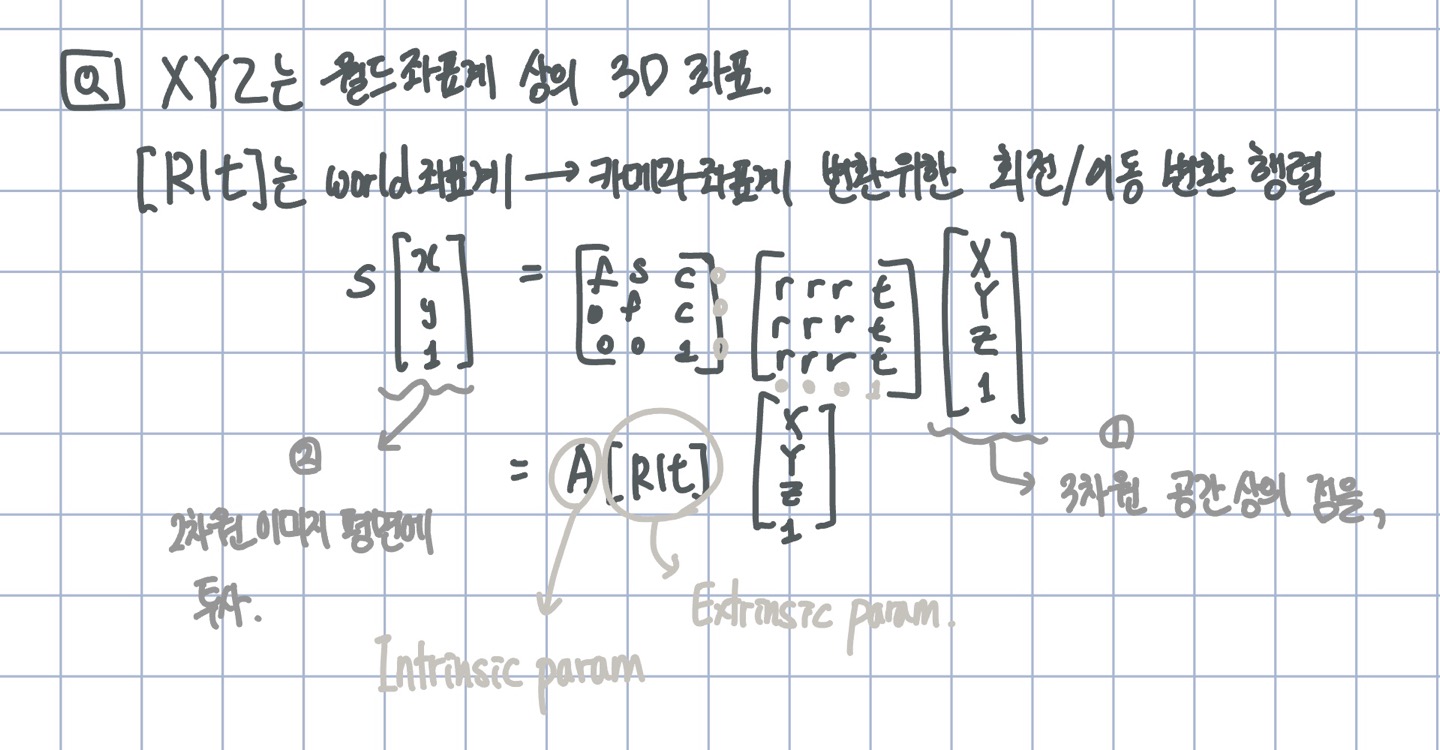 Q XYZ는 월드좌표계 상의 3D 좌표.
[R|t]는 world좌표계 → 카메라좌표계 변환위한 회전/이동 변환 행렬
s [x y 1] = [f s c 0 0 f c 0 0 0 1 0] [r r r t r r r t r r r t 0 0 0 1] [X Y Z 1]
= A [R|t] [X Y Z 1]
① 3차원 공간상의 점을,
② 2차원 이미지 평면에
투사.
Extrinsic param.
Intrinsic param